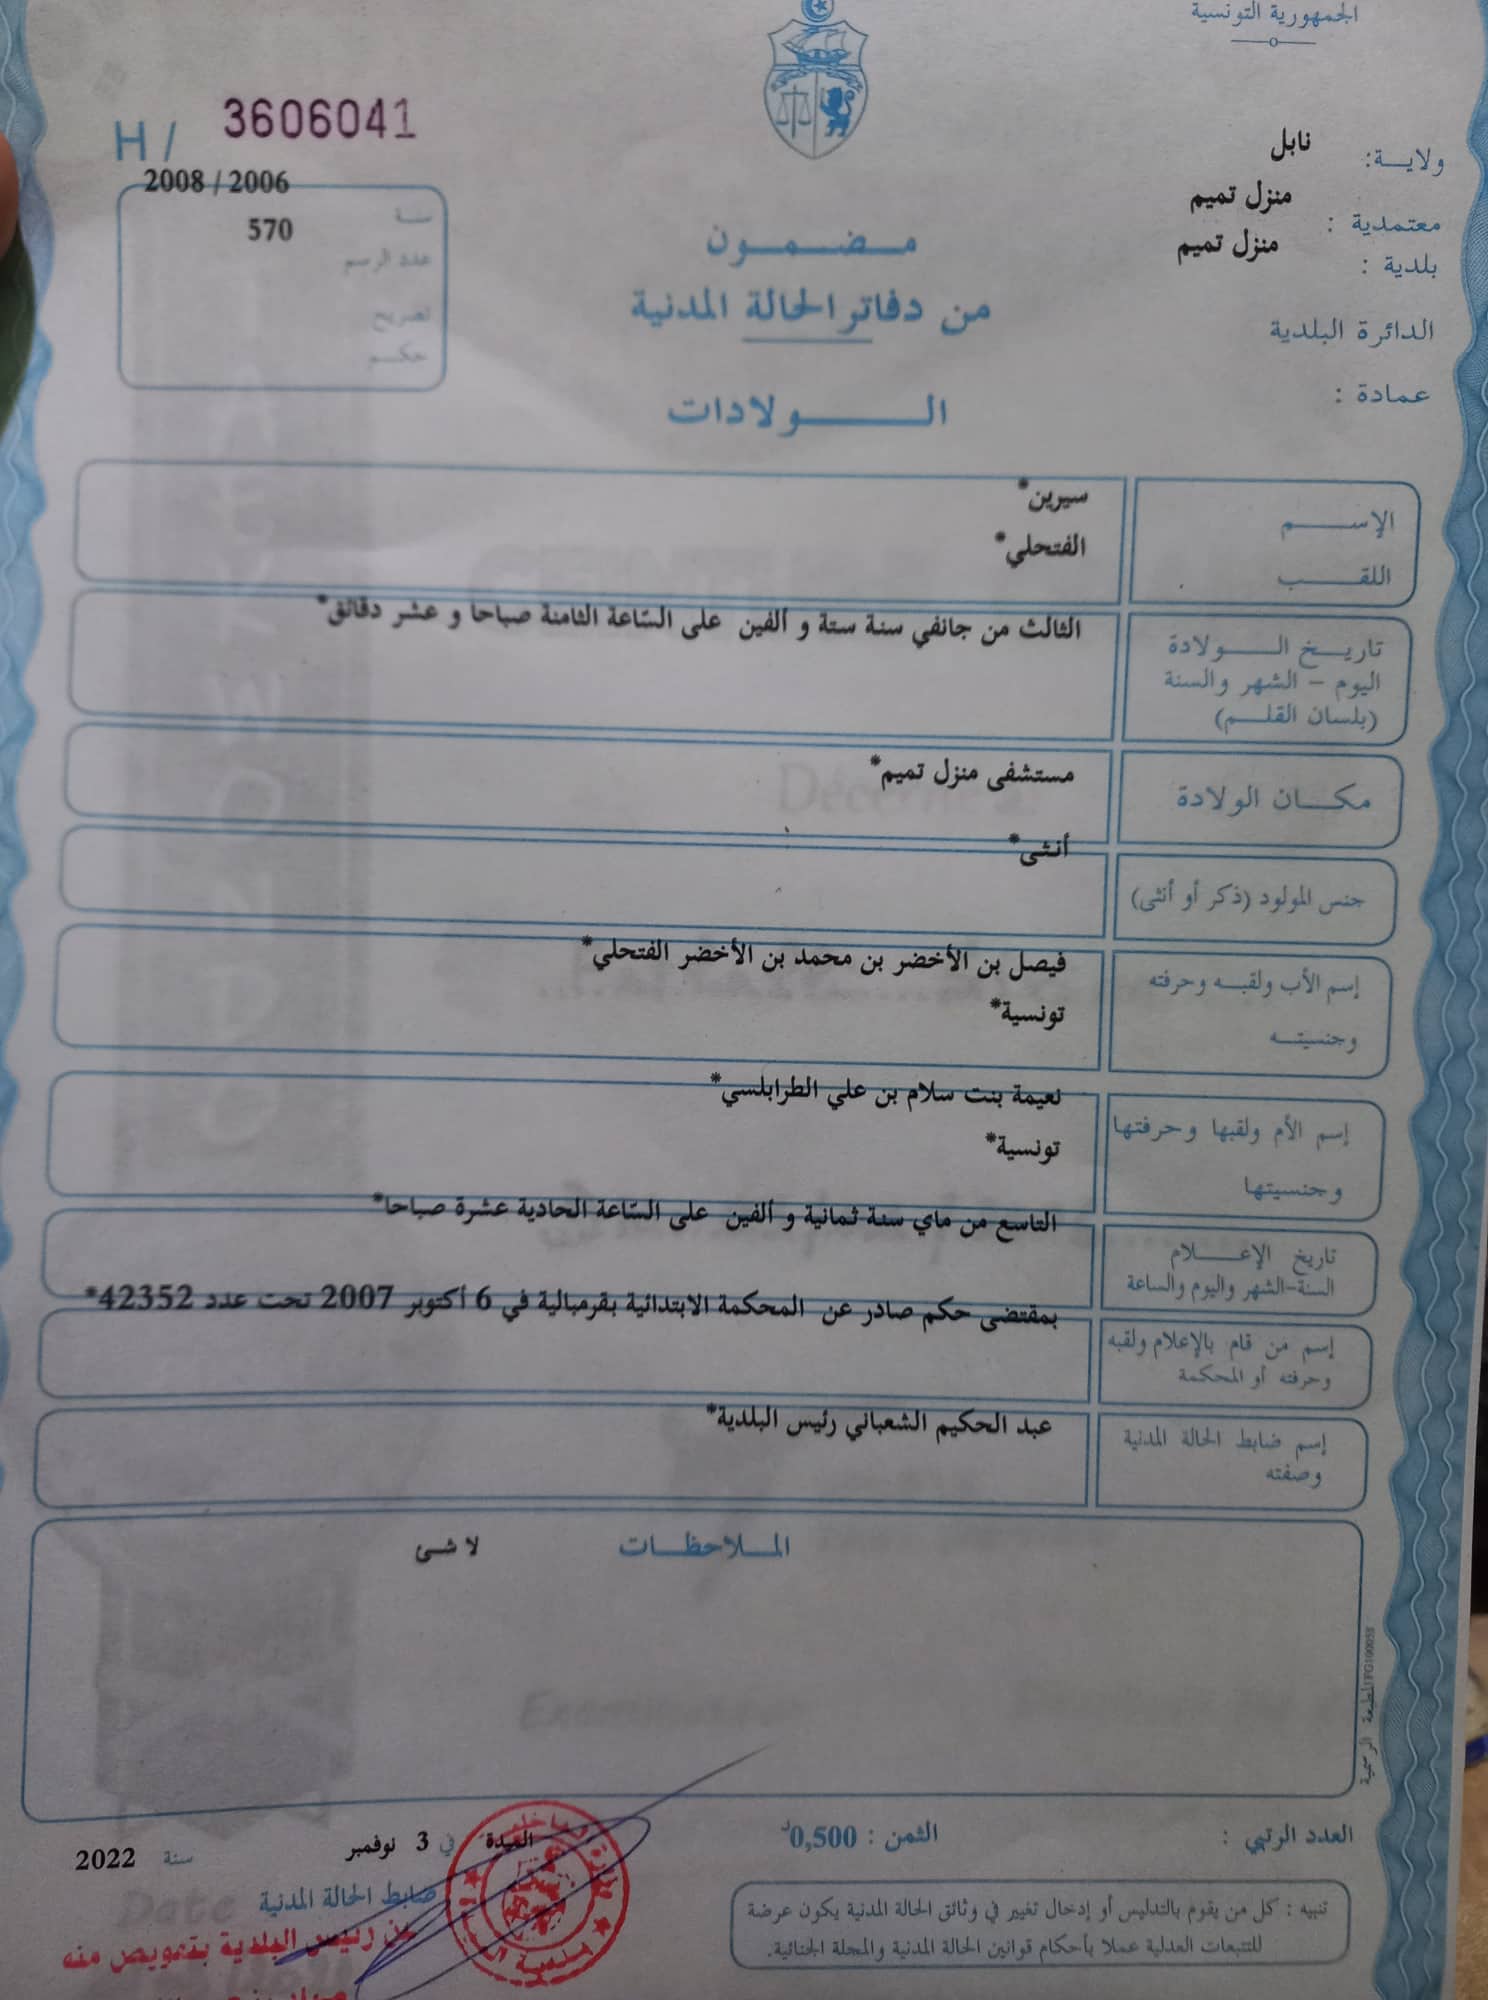 الجمهورية التونسية
H / 3606041
ولايـــة: نابل
معتمدية : منزل تميم
بلدية : منزل تميم
الدائرة البلدية
عمادة :
2008 / 2006
سنة
570
عدد الرسم
تصريح
حكـــم
مـضـمـــون
من دفاتر الحالة المدنية
الـــــــولادات
الإســـــم سيرين*
اللقـــب الفتحلي*
تاريـــخ الـــــولادة
اليوم – الشهر والسنة
(بلسان القلـــم)
الثالث من جانفي سنة ستة و ألفين على السّاعة الثامنة صباحا و عشر دقائق*
مكـــان الولادة مستشفى منزل تميم*
جنس المولود (ذكر أو أنثى) أنثى*
إسم الأب ولقبـــه وحرفته
وجنسيتـــه
فيصل بن الأخضر بن محمد بن الأخضر الفتحلي*
تونسية*
إسم الأم ولقبها وحرفتها
وجنسيتها
نعيمة بنت سلام بن علي الطرابلسي*
تونسية*
تاريخ الإعـــــلام
السنة-الشهر واليوم والساعة
التاسع من ماي سنة ثمانية و ألفين على السّاعة الحادية عشرة صباحا*
إسم من قام بالإعلام ولقبه
وحرفته أو المحكمة
بمقتضى حكم صادر عن المحكمة الابتدائية بقرمبالية في 6 أكتوبر 2007 تحت عدد 42352*
إسم ضابط الحالة المدنية
وصفته
عبد الحكيم الشعباني رئيس البلدية*
المـــلاحظـــات
لا شئ
المطبعة الرسمية
العدد الرتبي :
الثمن : 0,500د
في 3 نوفمبر
سنة 2022
ضابط الحالة المدنية
عن رئيس البلدية بتفويض منه
تنبيه : كل من يقوم بالتدليس أو إدخال تغيير في وثائق الحالة المدنية يكون عرضة
للتتبعات العدلية عملا بأحكام قوانين الحالة المدنية والمجلة الجنائية.